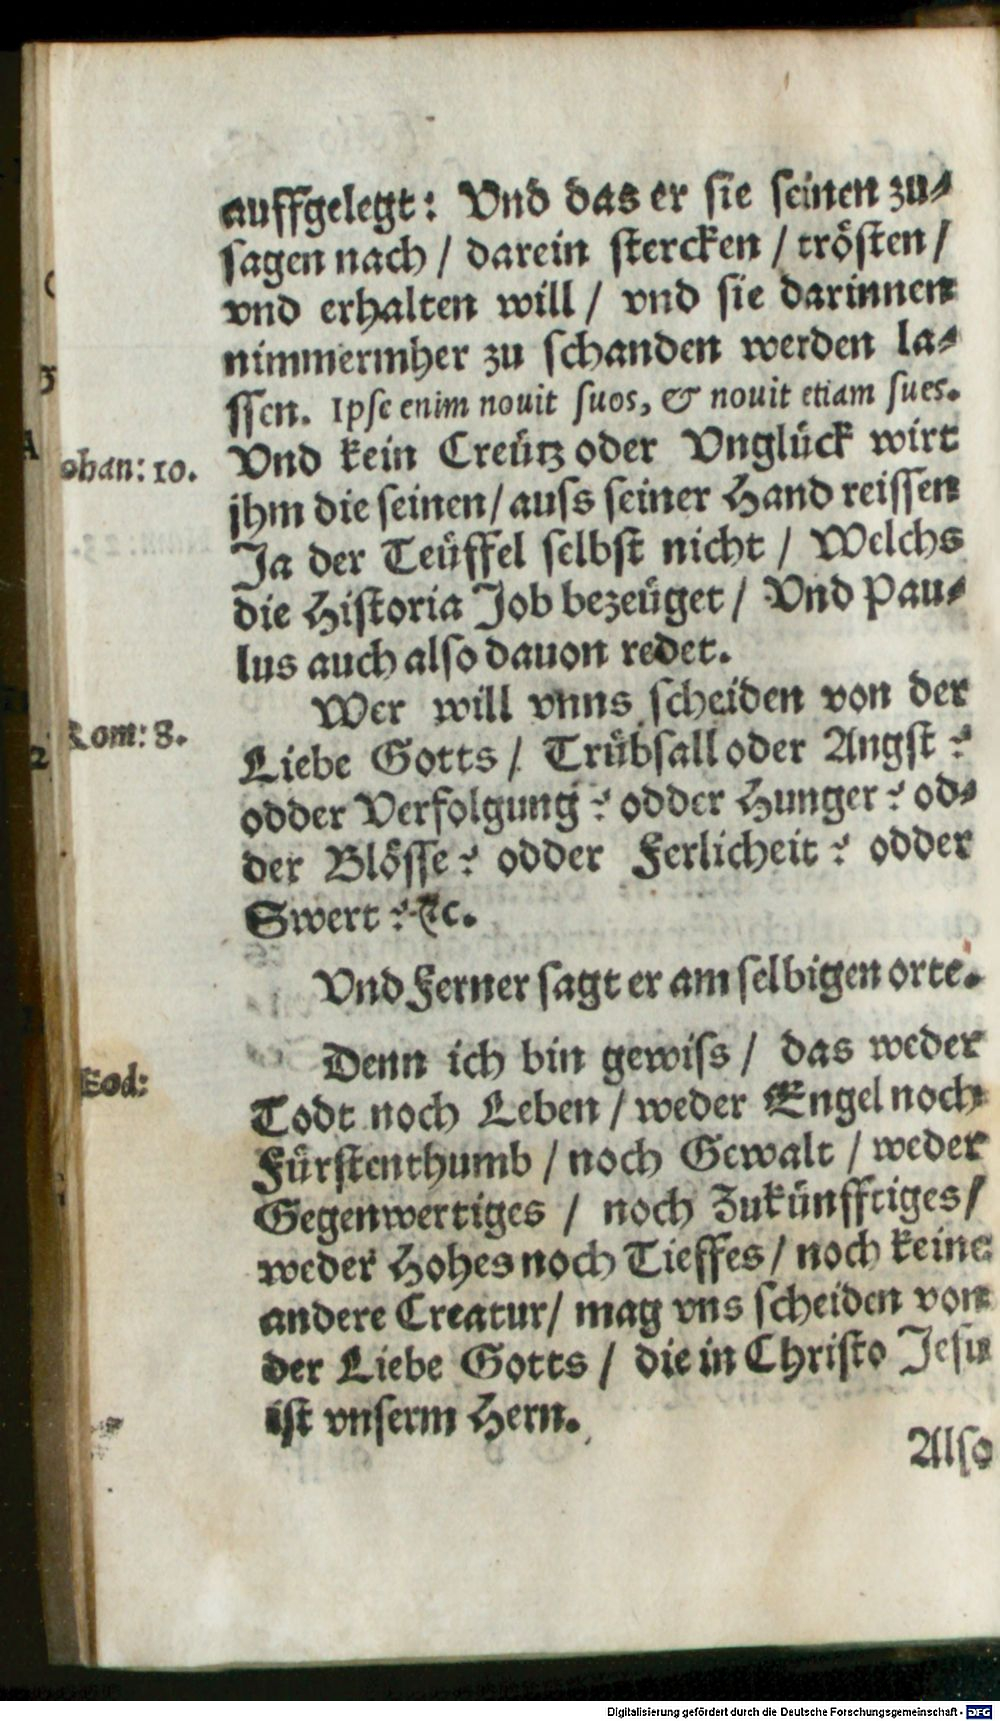 auffgelegt: Vnd das er sie seinen zu⸗
sagen nach / darein stercken / trösten /
vnd erhalten will / vnd sie darinnen
nimmermher zu schanden werden la⸗
ssen. Ipse enim nouit suos, & nouit etiam sues.
ohan: 10.
Vnd kein Creütz oder Vnglück wirt
jhm die seinen / auss seiner Hand reissen
Ja der Teüffel selbst nicht / Welchs
die Historia Job bezeüget / Vnd Pau⸗
lus auch also dauon redet.
Rom: 8.
Wer will vnns scheiden von der
Liebe Gotts / Trübsall oder Angst?
odder Verfolgung? odder Hunger? od⸗
der Blösse? odder Ferlicheit? odder
Swert? &c.
Vnd Ferner sagt er am selbigen orte.
Eod:
Denn ich bin gewiss / das weder
Todt noch Leben / weder Engel noch
Fürstenthumb / noch Gewalt / weder
Gegenwertiges / noch Zukünfftiges /
weder Hohes noch Tieffes / noch keine
andere Creatur / mag vns scheiden von
der Liebe Gotts / die in Christo Jesu
ist vnserm Hern.
Also
Digitalisierung gefördert durch die Deutsche Forschungsgemeinschaft - DFG